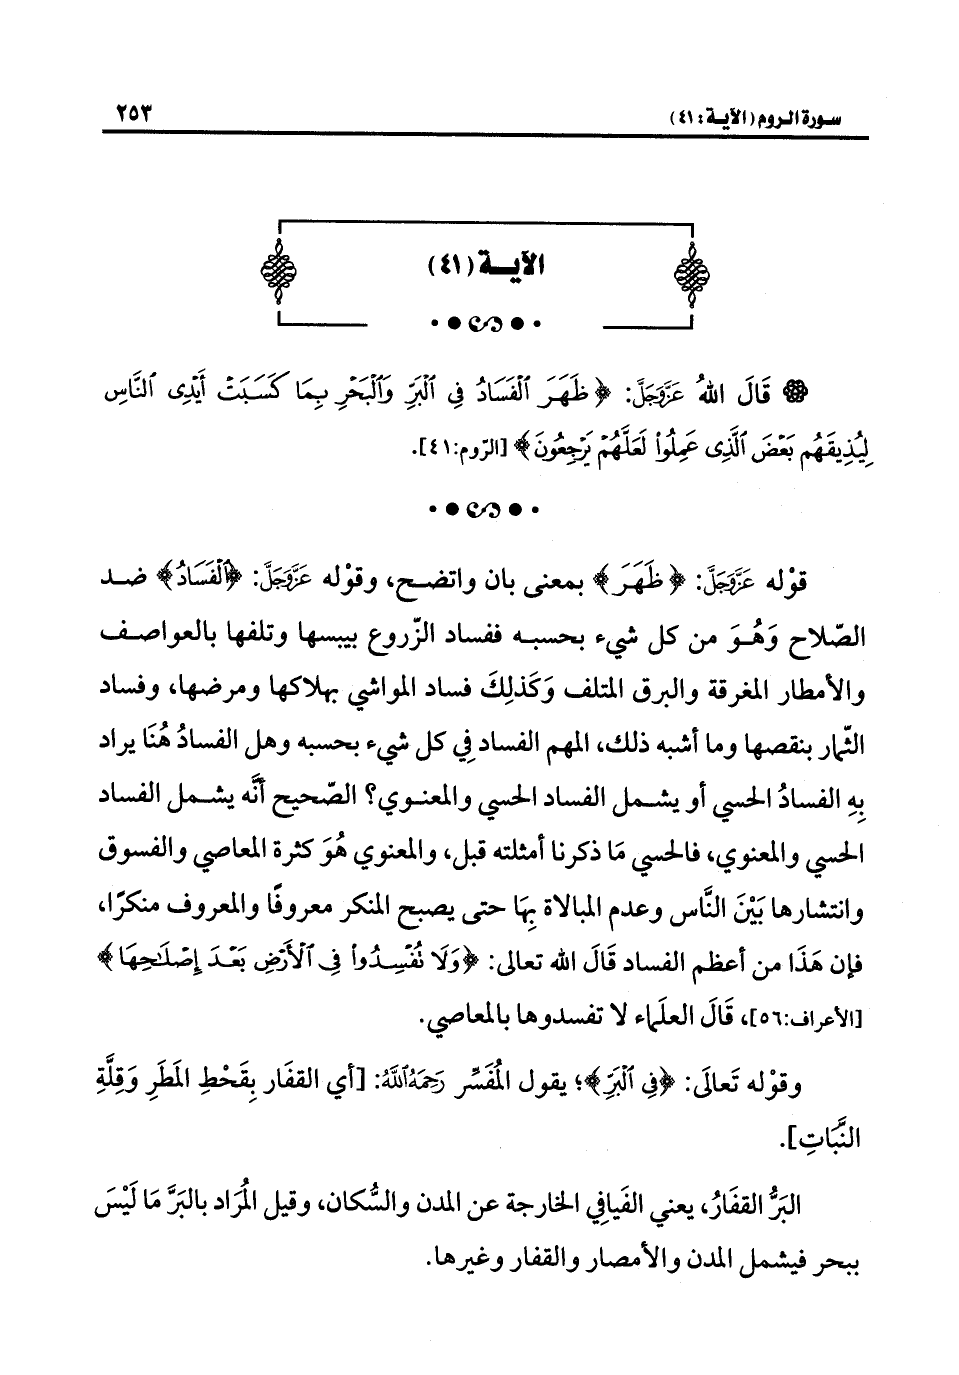 سورة الروم (الآية: ٤١)
٢٥٣
الآيــة (٤١)
قَالَ اللهُ عَزَّوَجَلَّ: ﴿ظَهَرَ ٱلْفَسَادُ فِى ٱلْبَرِّ وَٱلْبَحْرِ بِمَا كَسَبَتْ أَيْدِى ٱلنَّاسِ
لِيُذِيقَهُم بَعْضَ ٱلَّذِى عَمِلُوا۟ لَعَلَّهُمْ يَرْجِعُونَ﴾ [الرّوم:٤١].
قوْله عَزَّوَجَلَّ: ﴿ظَهَرَ﴾ بمعنى بان واتضح، وقوْله عَزَّوَجَلَّ: ﴿ٱلْفَسَادُ﴾ ضد
الصّلاح وَهُوَ من كل شيء بحسبه ففساد الزّروع بيبسها وتلفها بالعواصف
والأمطار المغرقة والبرق المتلف وَكَذلِكَ فساد المواشي بهلاكها ومرضها، وفساد
الثّمار بنقصها وما أشبه ذلك، المهم الفساد فِي كل شيء بحسبه وهل الفسادُ هُنَا يراد
بِهِ الفسادُ الحسي أو يشمل الفساد الحسي والمعنوي؟ الصّحيح أنَّه يشمل الفساد
الحسي والمعنوي، فالحسي مَا ذكرنا أمثلته قبل، والمعنوي هُوَ كثرة المعاصي والفسوق
وانتشارها بَيْنَ النَّاس وعدم المبالاة بِهَا حتى يصبح المنكر معروفًا والمعروف منكرًا،
فإن هَذَا من أعظم الفساد قَالَ الله تعالى: ﴿وَلَا نُفْسِدُوا۟ فِى ٱلْأَرْضِ بَعْدَ إِصْلَـٰحِهَا﴾
[الأعراف:٥٦]، قَالَ العلَماء لا تفسدوها بالمعاصي.
وقوْله تَعالَى: ﴿فِى ٱلْبَرِّ﴾؛ يقول المُفَسِّر رَحِمَهُ ٱللَّهُ: [أي القفَار بِقَحْطِ المَطَرِ وَقِلَّةِ
النَّبَاتِ].
البَرُّ القفَارُ، يعني الفَيافِي الخارجة عن المدن والسُّكان، وقيل المُرَاد بالبَرَّ مَا لَيْسَ
ببحر فيشمل المدن والأمصار والقفار وغيرها.